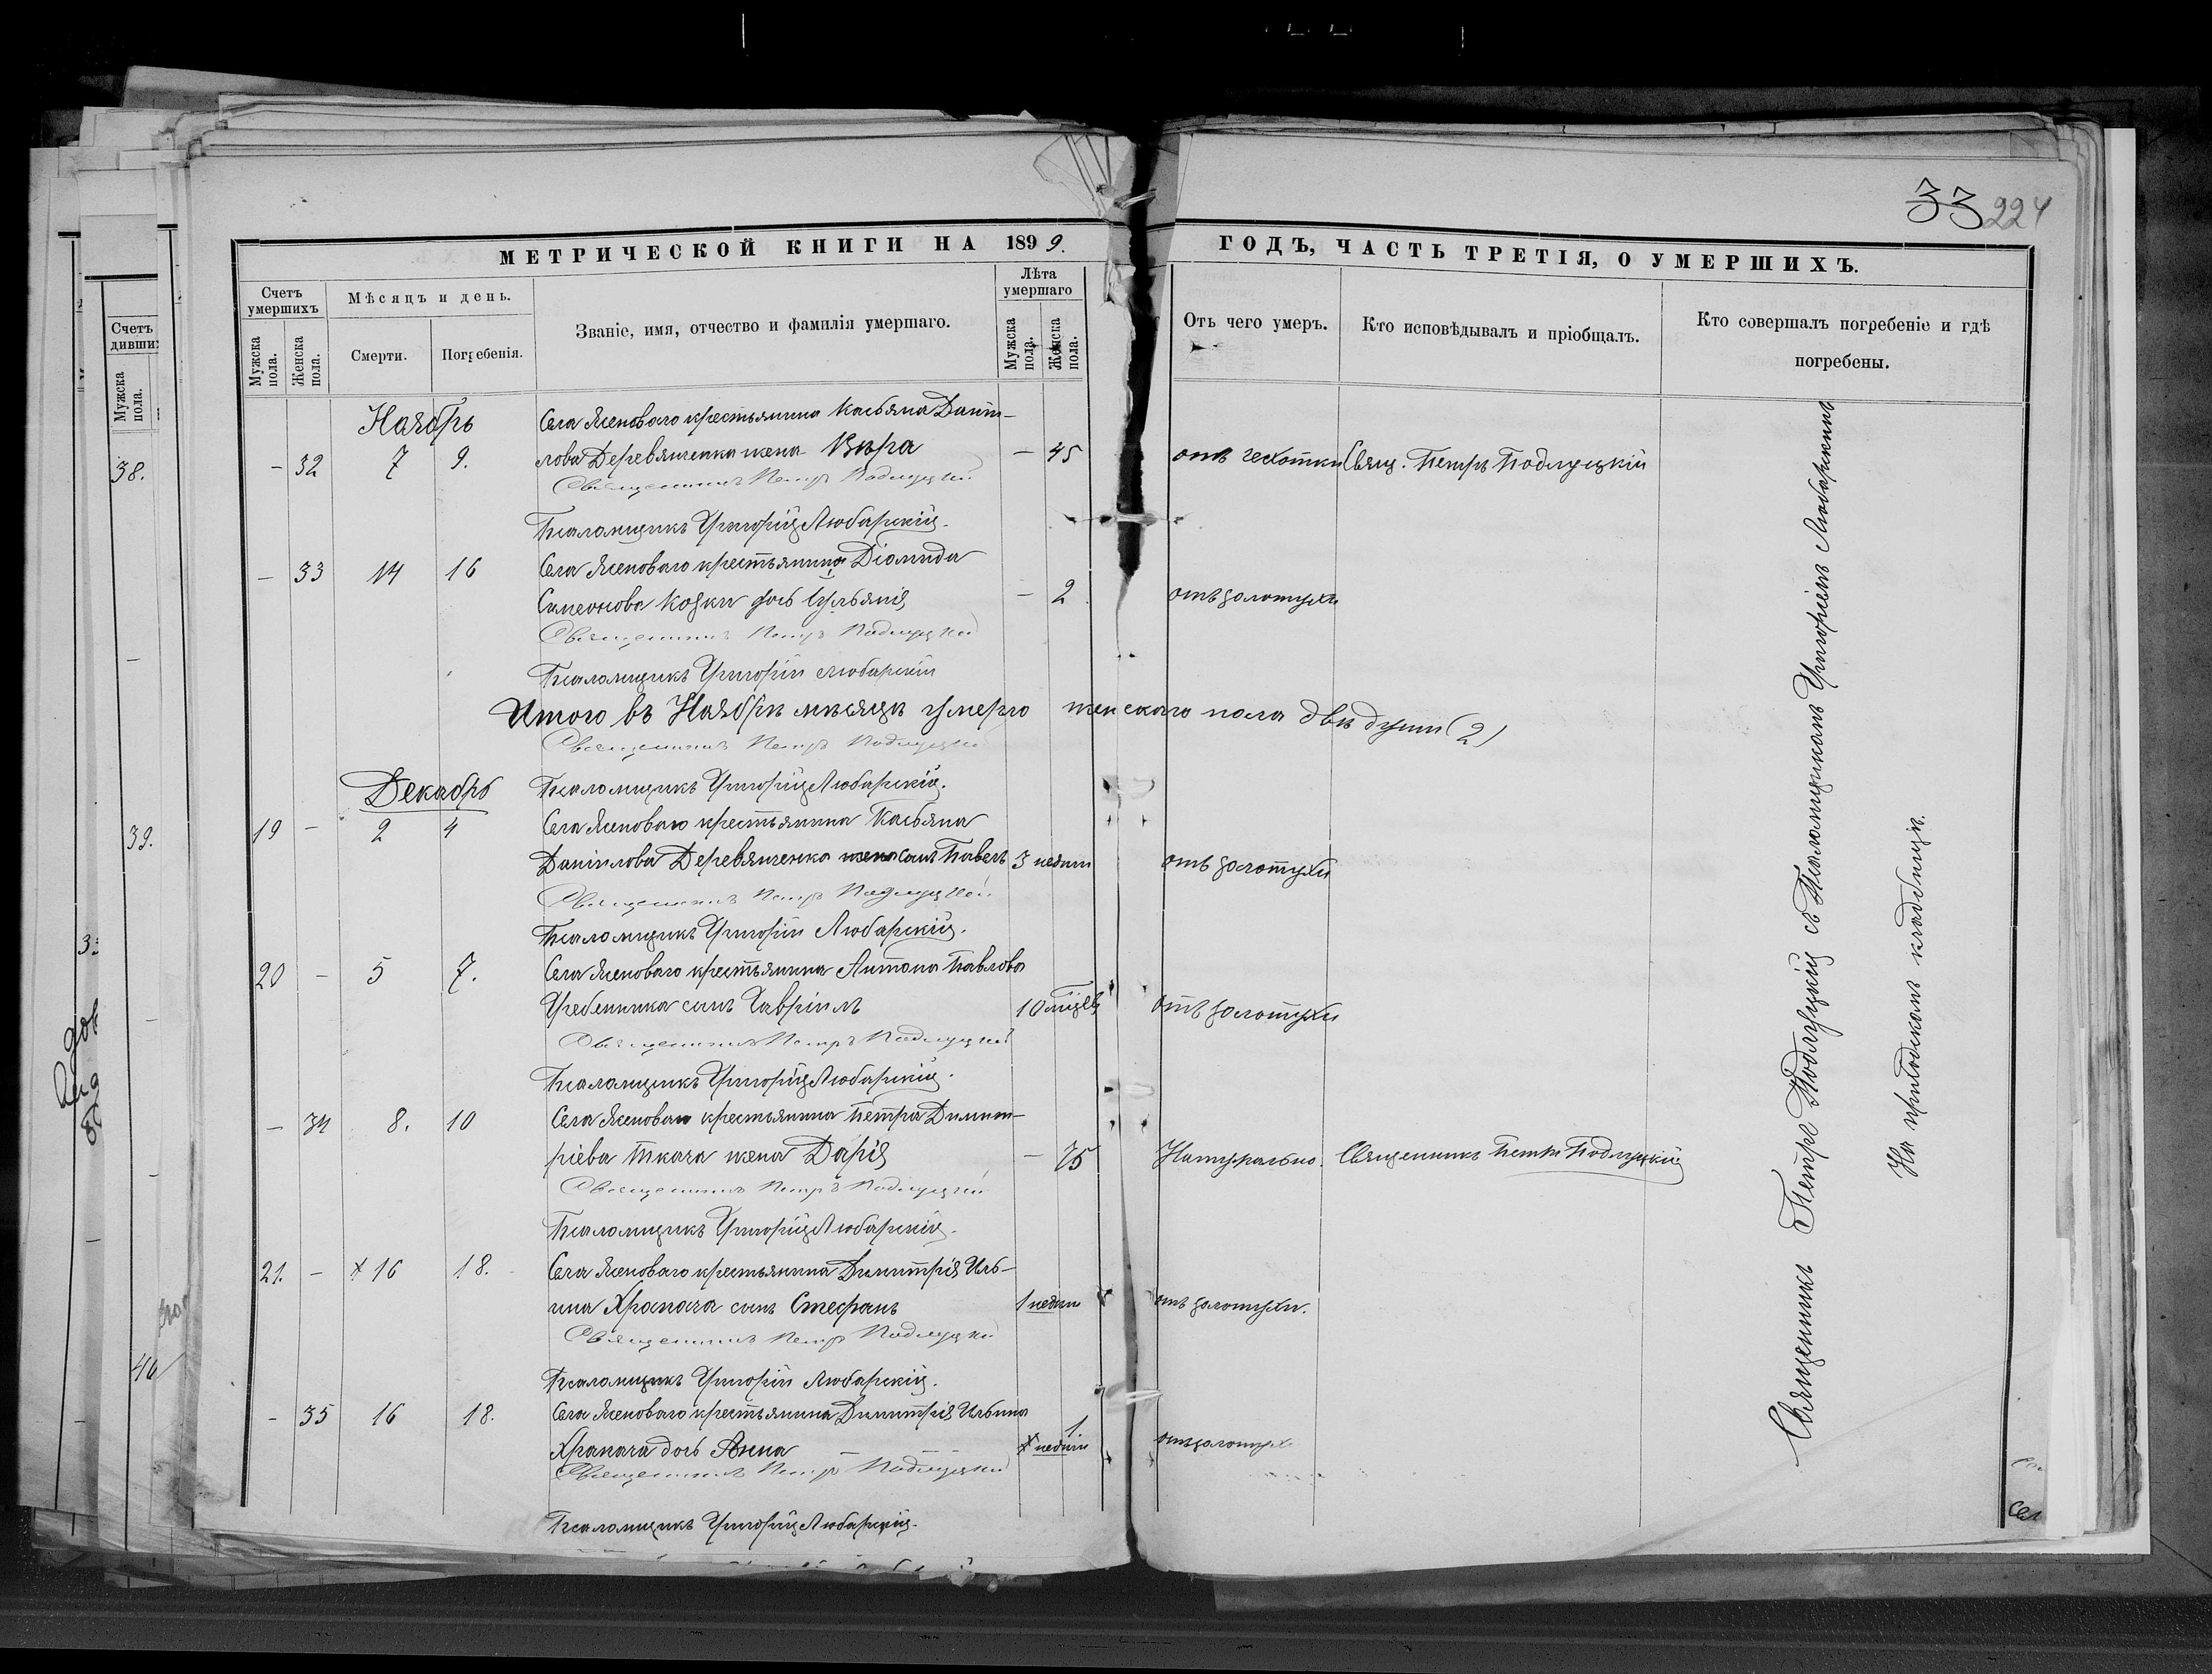 33 224
МЕТРИЧЕСКОЙ КНИГИ НА 1899. ГОДЪ, ЧАСТЬ ТРЕТІЯ, О УМЕРШИХЪ.
Счетъ умершихъ
Мѣсяцъ и день.
Званіе, имя, отчество и фамилія умершаго.
Лѣта умершаго
Отъ чего умеръ.
Кто исповѣдывалъ и пріобщалъ.
Кто совершалъ погребеніе и гдѣ
погребены.
Мужска пола.
Женска пола.
Смерти.
Погребенія.
Мужска пола.
Женска пола.
Счетъ
Мужска пола.
38.
39.
Ноябрь
Села Ясеноваго крестьянина Касьяна Даніи-
– 32 7 9. лова Деревянченка жена Вѣра – 45 отъ чехотки Свящ. Петръ Подлуцкій
Священникъ Петръ Подлуцкій
Псаломщикъ Григорій Любарскій.
– 33 14 16 Села Ясеноваго крестьянина Діомида
Симеонова Козки дочь Іульянія – 2 отъ золотухи
Священникъ Петръ Подлуцкій
Псаломщикъ Григорій Любарскій
Итого въ Ноябрѣ мѣсяцѣ умерло женскаго пола двѣ души (2)
Священникъ Петръ Подлуцкій
Декабрь
Псаломщикъ Григорій Любарскій.
19 – 2 4 Села Ясеноваго крестьянина Касьяна
Даніилова Деревянченка жена сынъ Павелъ 3 недѣли отъ золотухи
Священникъ Петръ Подлуцкій
Псаломщикъ Григорій Любарскій.
20 – 5 7. Села Ясеноваго крестьянина Антона Павлова
Гребенника сынъ Гавріилъ 10 мцевъ отъ золотухи
Священникъ Петръ Подлуцкій
Псаломщикъ Григорій Любарскій.
– 34 8. 10 Села Ясеноваго крестьянина Петра Димит-
ріева Ткача жена Дарія – 75 Натурально. Священникъ Петръ Подлуцкій
Священникъ Петръ Подлуцкій
Псаломщикъ Григорій Любарскій.
21. – 16 18. Села Ясеноваго крестьянина Димитрія Иль-
ина Храпача сынъ Стефанъ 1 недѣли отъ золотухи.
Священникъ Петръ Подлуцкій
Псаломщикъ Григорій Любарскій.
– 35 16 18. Села Ясеноваго крестьянина Димитрія Ильина
Храпача дочь Анна 1. недѣли отъ золотух
Священникъ Петръ Подлуцкій
Псаломщикъ Григорій Любарскій.
Священникъ Петръ Подлуцкій съ Псаломщикомъ Григоріемъ Любарскимъ
На приходскомъ кладбищѣ.